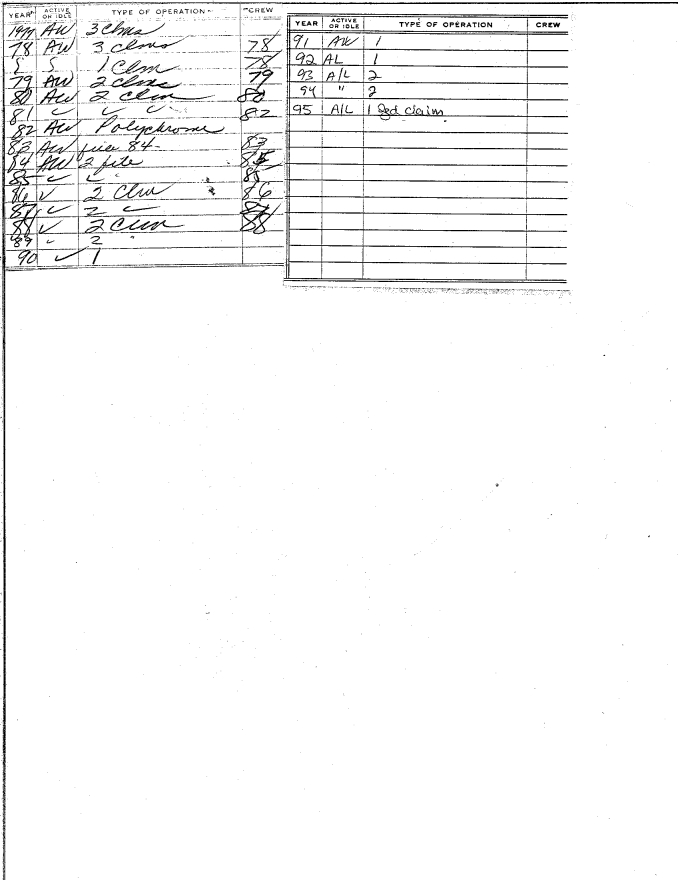 YEAR ACTIVE OR IDLE TYPE OF OPERATION CREW
1977 AW 3 clms
78 AW 3 clms 78
" " 1 Clm 78
79 AW 2 clms 79
80 AW 2 clm 80
81 " " " 82
82 AW Polychrome
83 AW 84 83
84 AW 2
85 " "
86 ✓ 2 Clm 86
87 " 2 " 87
88 ✓ 2 Clm 88
89 " 2 "
90 ✓ 1
YEAR ACTIVE OR IDLE TYPE OF OPERATION CREW
91 AW 1
92 AL 1
93 A/L 2
94 " 2
95 A/L 1 claim